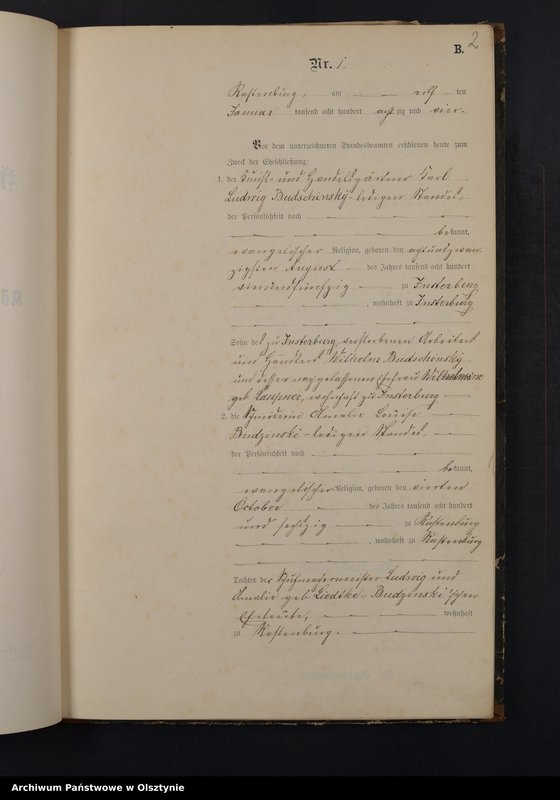 B. 2
Nr. 1.
Rastenburg, am elf ten
Januar tausend acht hundert achtzig und vier.
Vor dem unterzeichneten Standesbeamten erschienen heute zum
Zweck der Eheschließung:
1. der Kunst- und Handelsgärtner Karl
Ludwig Budschinsky - ledigen Standes,
der Persönlichkeit nach
bekannt,
evangelischer Religion, geboren den achtundzwan
zigsten August des Jahres tausend acht hundert
vierundfünfzig zu Insterburg
, wohnhaft zu Insterburg
Sohn des zu Insterburg verstorbenen Arbeiters
und Händlers Wilhelm Budschinsky
und dessen nachgelassenen Ehefrau Wilhelmine
geb. wohnhaft zu Insterburg
2. die Amalie Louise
Budzinski - ledigen Standes,
der Persönlichkeit nach
bekannt,
evangelischer Religion, geboren den vierten
October des Jahres tausend acht hundert
und sechzig zu Rastenburg
, wohnhaft zu Rastenburg
Tochter der Schuhmachermeister Ludwig und
Amalie geb. Liedtke - Budzinski'schen
Eheleute, wohnhaft
zu Rastenburg.
Archiwum Państwowe w Olsztynie